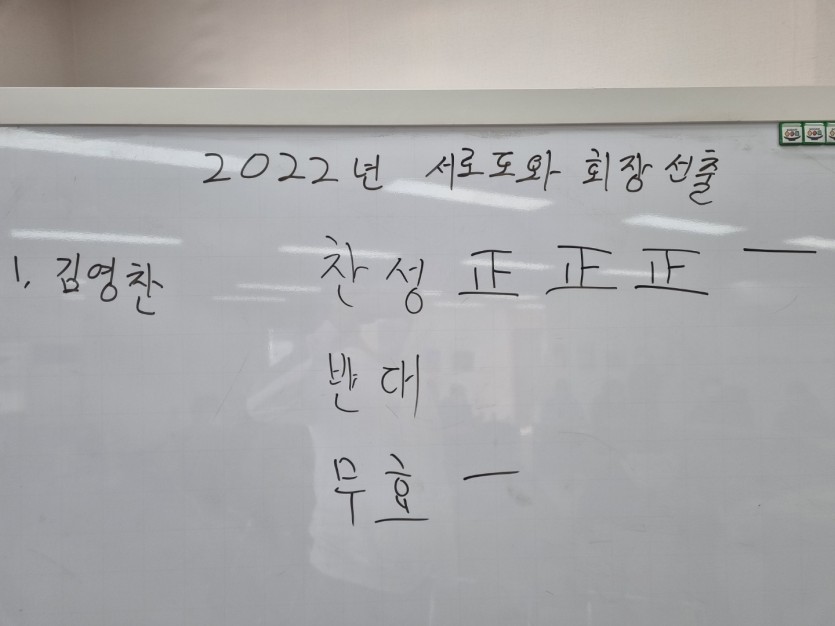 2022년 서로도와 회장 선출
1. 김영찬 찬성 正 正 正 一
반대
무효 一